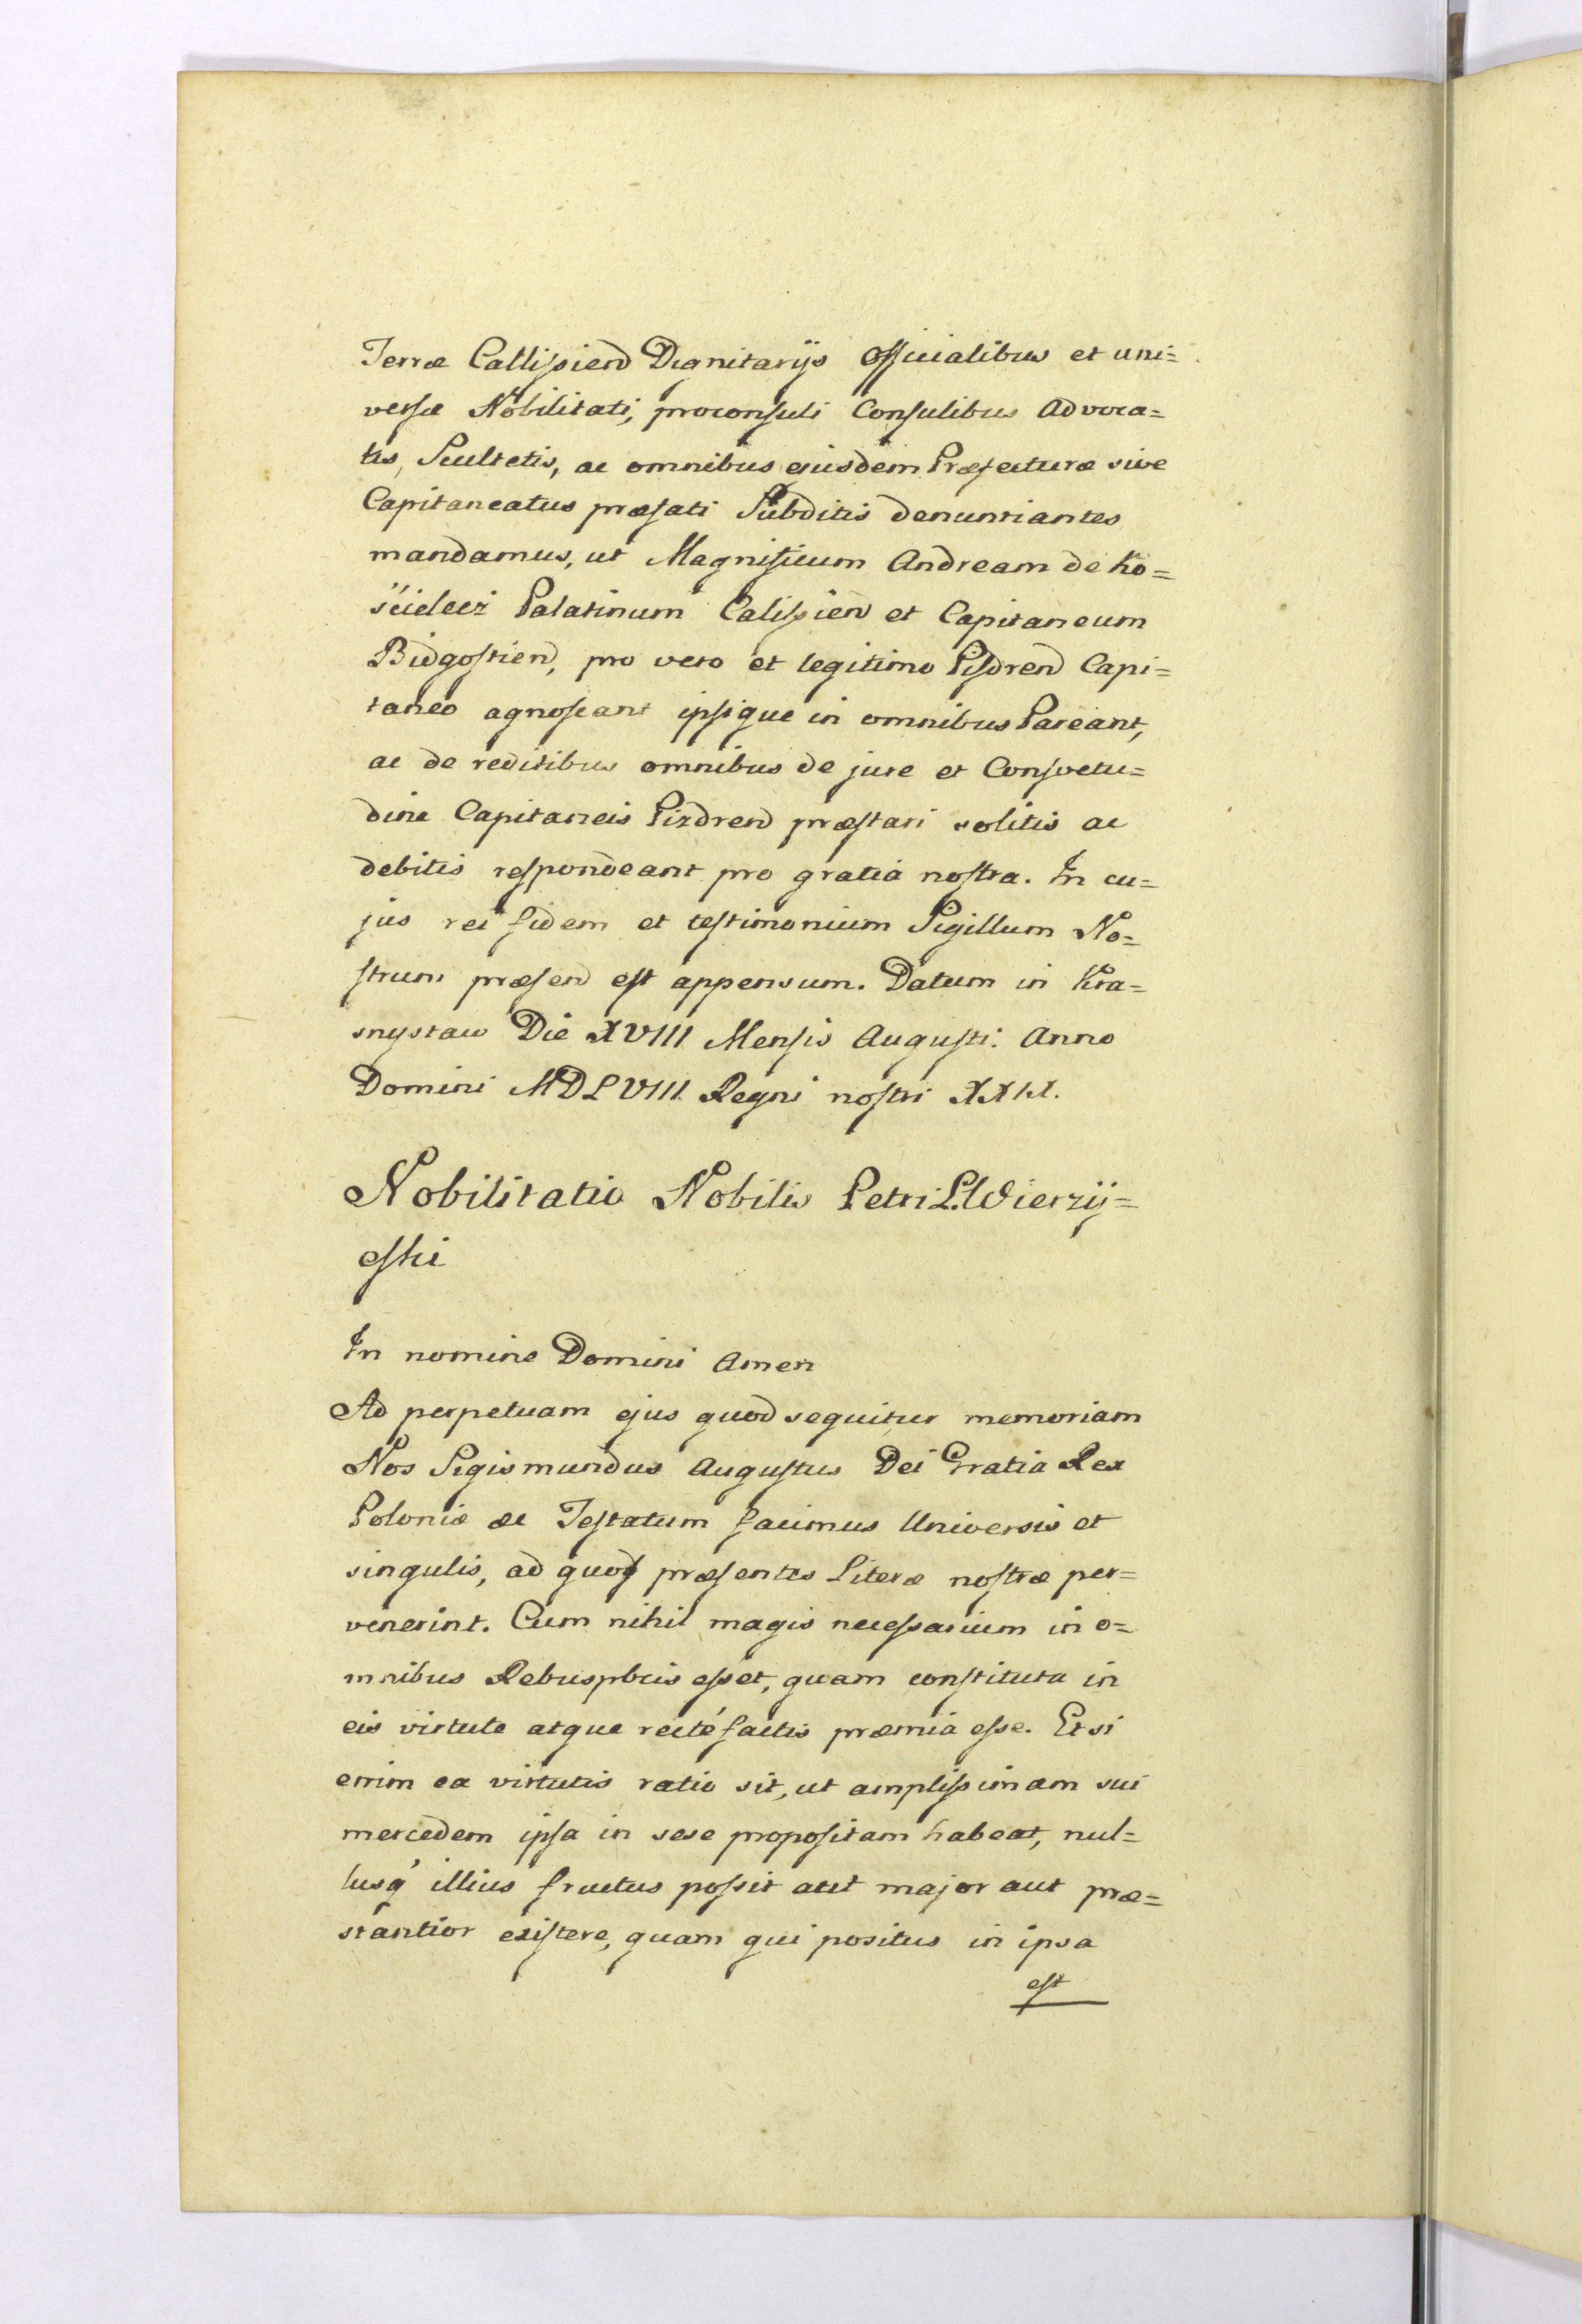 Terræ Callisien Dignitarijs Officialibus et uni=
versæ Nobilitati, proconsuli Consulibus Advoca=
tis, Scultetis, ac omnibus ejusdem Præfecturæ sive
Capitaneatus præfati Subditis denuntiantes
mandamus, ut Magnificum Andream de Ko=
ścielecz Palatinum Calisien et Capitaneum
Bidgostien, pro vero et legitimo Pisdren Capi=
taneo agnoscant ipsique in omnibus Pareant,
ac de reditibus omnibus de jure et Consvetu=
dine Capitaneis Pizdren præstari solitis ac
debitis respondeant pro gratia nostra. In cu=
jus rei fidem et testimonium Sigillum No=
strum præsen est appensum. Datum in Kra=
snystaw Die XVIII Mensis Augusti. Anno
Domini MDLVIII Regni nostri
Nobilitatio Nobilis Petri L. Wierzij=
In nomine Domini Amen
Ad perpetuam ejus quod sequitur memoriam
Nos Sigismundus Augustus Dei Gratia Rex
Poloniæ ac Testatum facimus Universis et
singulis, ad quos præsentes Literæ nostræ per=
venerint. Cum nihil magis necessarium in o=
mnibus Rebuspbcis esset, quam constituta in
eis virtute atque recté factis præmia esse. Etsi
enim ea virtutis ratio sit, ut amplissimam sui
mercedem ipsa in sese propositam habeat, nul=
lusq' illius fructus possit aut major aut præ=
stantior existere, quam qui positus in ipsa
est